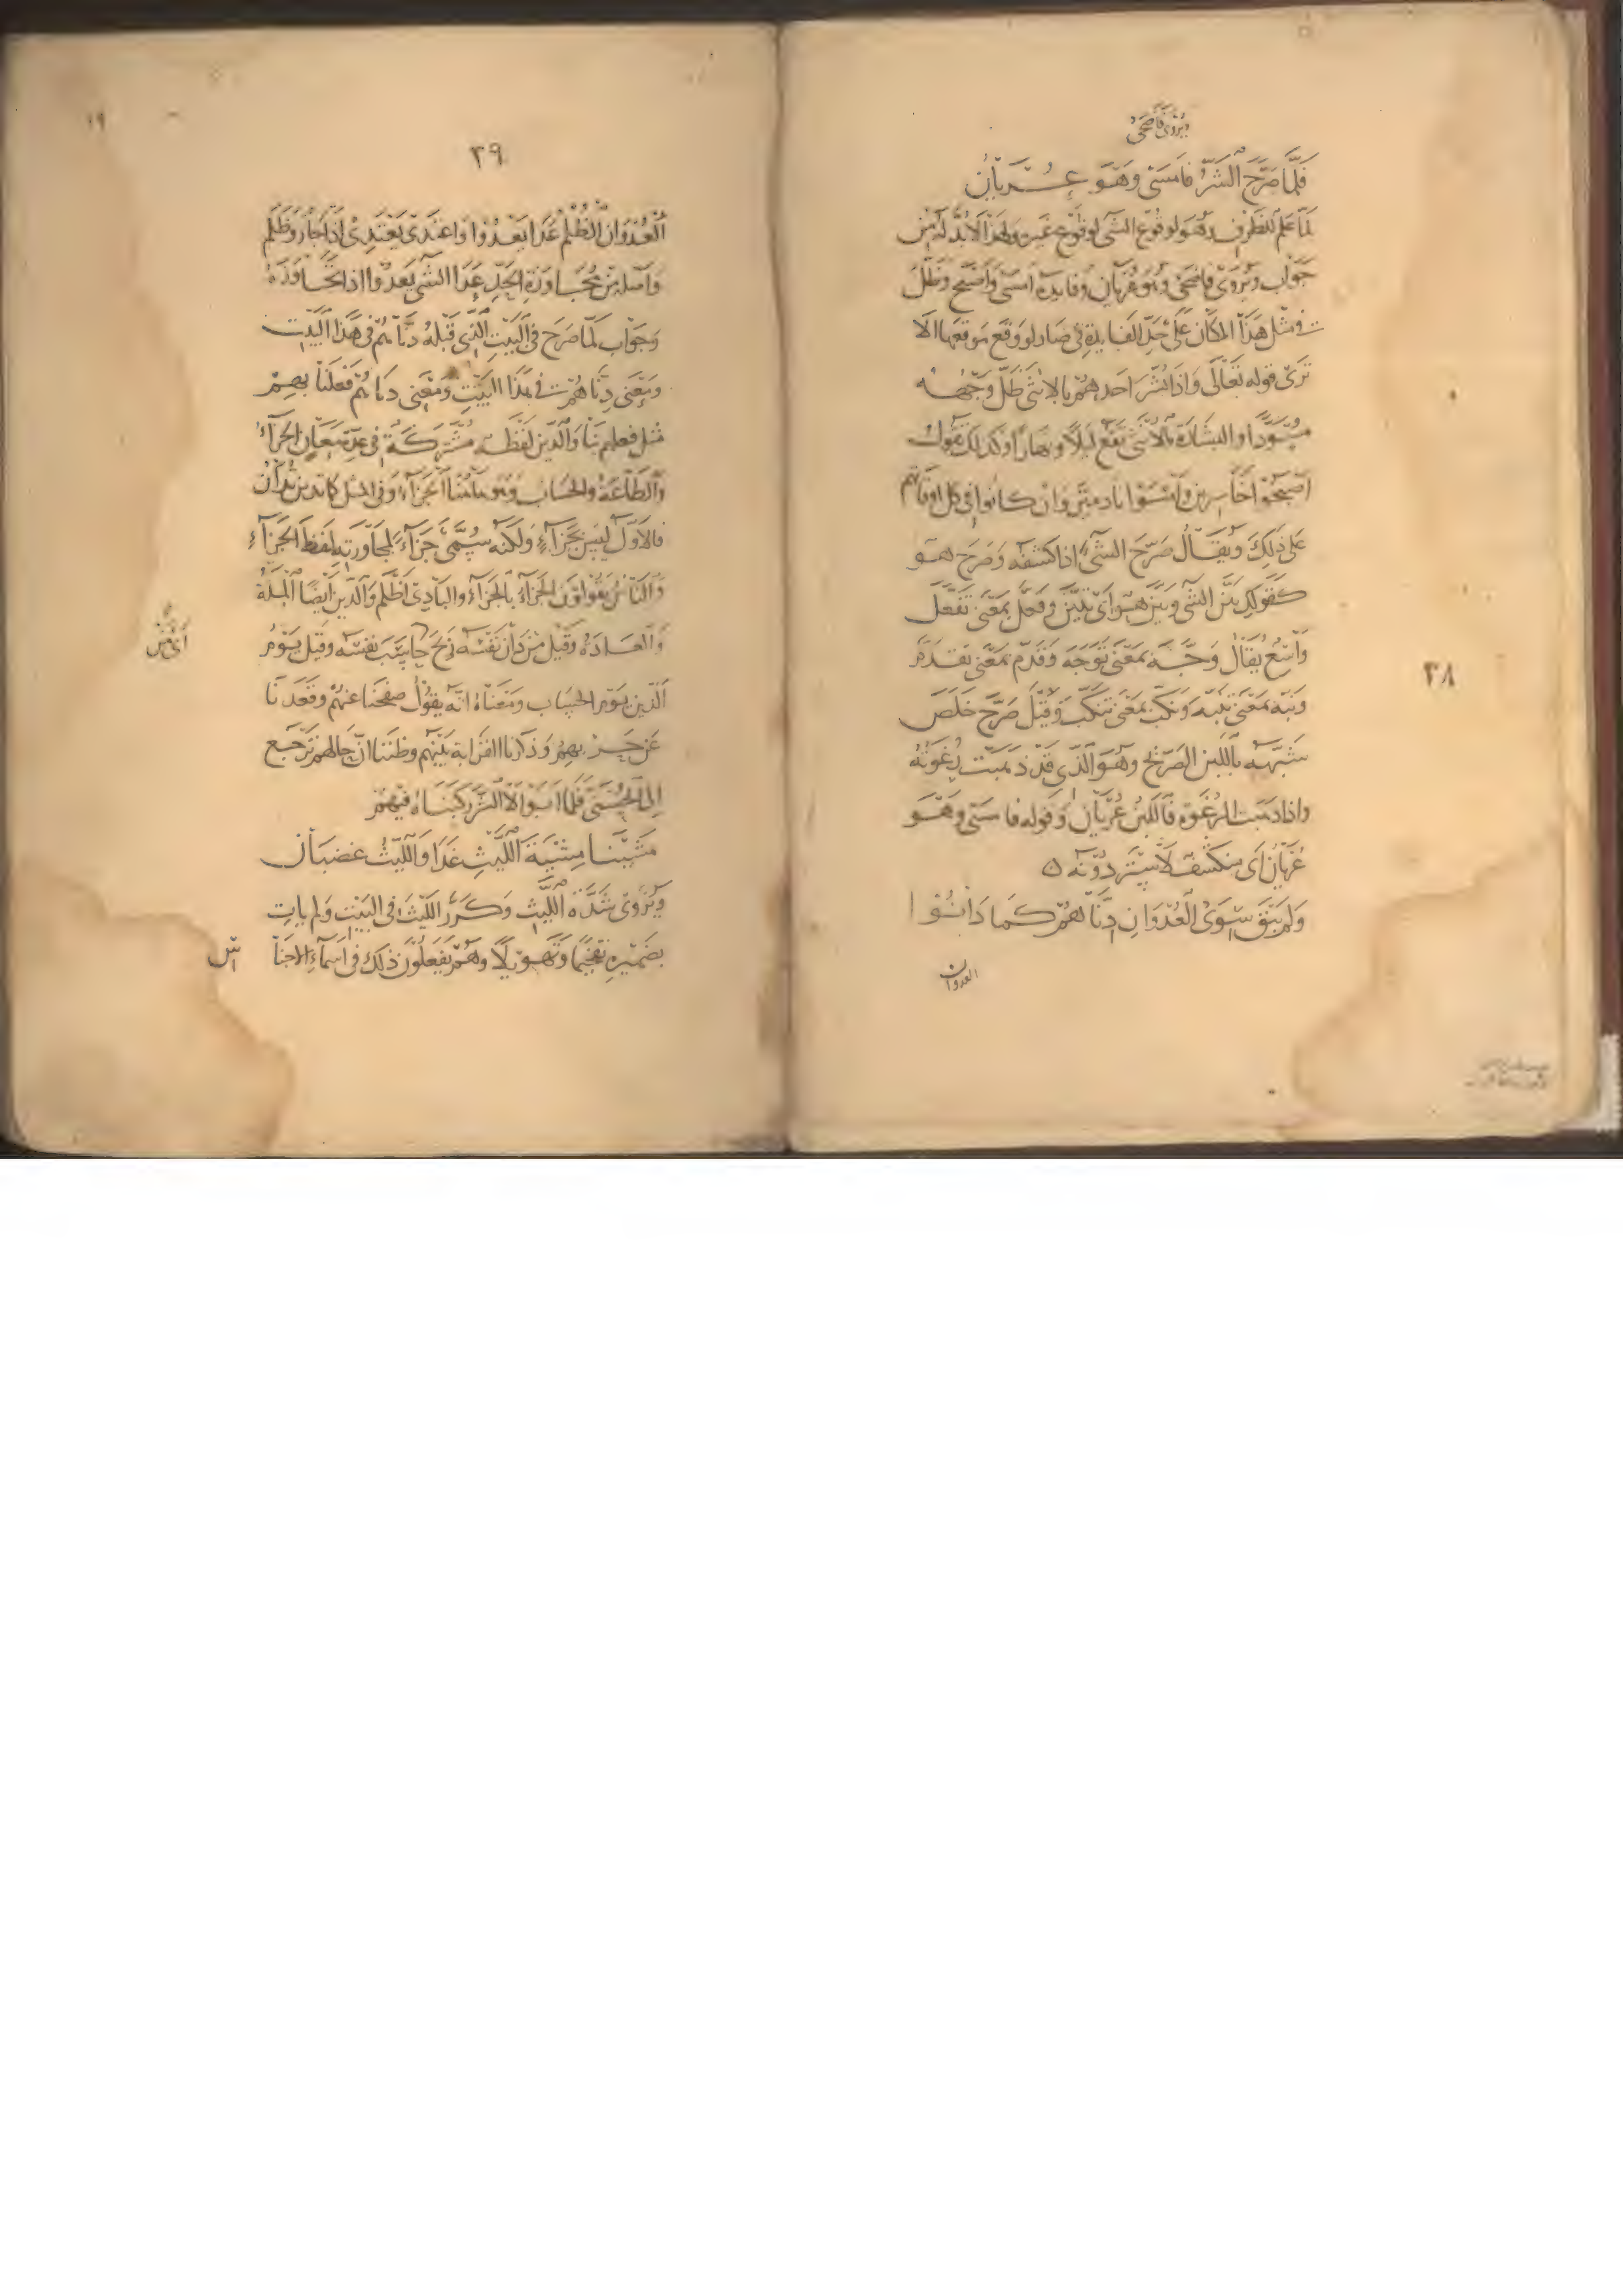 ويروى فأضحى
فَلَمَّا صَرَّحَ الشَّرُّ فَأَمْسَى وَهْوَ عُرْيَانُ
لما علم للظرف وهو لوقوع الشي لوقوع غيره ولهذا لابد له من
جواب ويروى فاضحى وهو عريان وفايدة امسى واصبح وظل
في مثل هذا المكان على حد الفايدة في صار لو وقع موقعها الا
ترى قوله تعالى واذا بشر احدهم بالانثى ظل وجهه
مسودا والبشارة بالانثى تقع ليلا ونهارا وكذلك تقول
اصبحوا خاسرين وامسوا نادمين وان كانوا في كل اوقاتهم
على ذلك ويقال صرح الشي اذا كشفه وصرح هو
كقولك بين الشي وبين هو اى تبين وفعل بمعنى تفعل
واسع يقال وجه بمعنى توجه وقدم بمعنى تقدم
ونبه بمعنى تنبه ونكب بمعنى تنكب وقيل صرح خلص
شبهه باللبن الصريح وهو الذى قد ذهبت رغوته
واذا ذهبت الرغوة فاللبن عريان وقوله فامسى وهو
عريان اى منكشف لا ستر دونه ۵
وَلَمْ يَبْقَ سِوَى الْعُدْوَانِ دِنَّاهُمْ كَمَا دَانُوا
العدوان
٢٨
١٩
٢٩
العدوان الظلم عدا يعدوا واعتدى يعتدى اذا جار وظلم
واصله من مجاوزة الحد عدا الشي يعدوا اذا تجاوزه
وجواب لما صرح في البيت الذى قبله دناهم في هذا البيت
ومعنى دناهم فعلنا بهم
مثل فعلهم بنا والدين لفظة مشتركة في عدة معان الجزاء
والطاعة والحساب وهو هاهنا الجزاء وفي المثل كما تدين تدان
فالاول ليس بجزاء ولكنه سمى جزاء لمجاورته لفظ الجزاء
والناس يقولون الجزاء بالجزاء والبادى اظلم والدين ايضا الملة
والعادة وقيل من دان نفسه ربح حاسب نفسه وقيل يوم
الدين يوم الحساب ومعناه انه يقول صفحنا عنهم وقعدنا
عن حربهم وذكرنا القرابة بينهم وظننا ان حالهم ترجع
الى الحسنى فلما ابوا الا الشر ركبناه فيهم
مَشَيْنَا مِشْيَةَ اللَّيْثِ غَدَا وَاللَّيْثُ غَضْبَانُ
ويروى شدة الليث وكرر الليث في البيت ولم يات
بضميره تفخيما وتهويلا وهم يفعلون ذلك في اسماء الاجناس